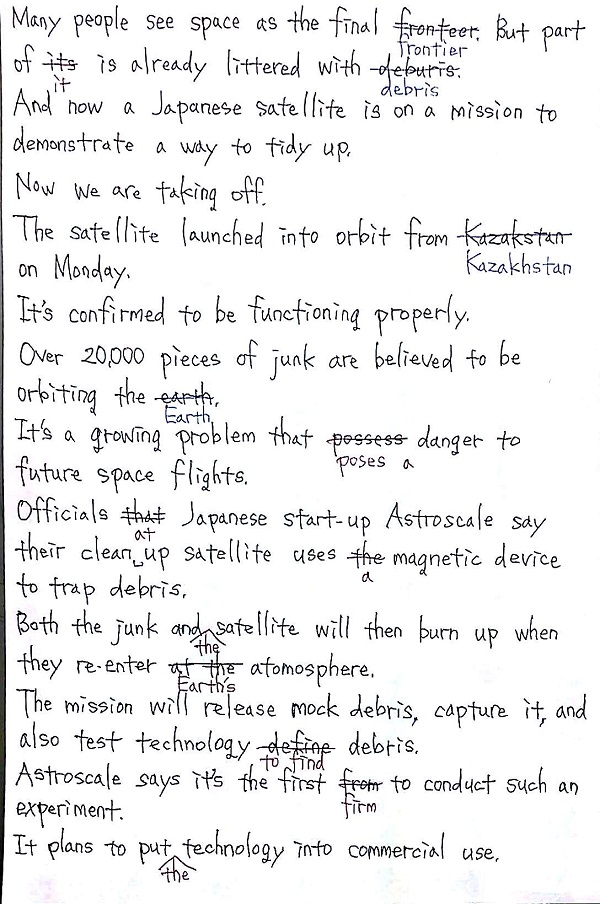 Many people see space as the final fronteer. But part
frontier
of its is already littered with deburis.
it debris
And now a Japanese satellite is on a mission to
demonstrate a way to tidy up.
Now we are taking off.
The satellite launched into orbit from Kazakstan
on Monday. Kazakhstan
It's confirmed to be functioning properly.
Over 20,000 pieces of junk are believed to be
orbiting the earth.
Earth
It's a growing problem that possess danger to
poses a
future space flights.
Officials that Japanese start-up Astroscale say
at
their clean up satellite uses the magnetic device
a
to trap debris.
Both the junk and satellite will then burn up when
the
they re-enter at the atomosphere.
Earth's
The mission will release mock debris, capture it, and
also test technology define debris.
to find
Astroscale says it's the first from to conduct such an
firm
experiment.
It plans to put technology into commercial use.
the